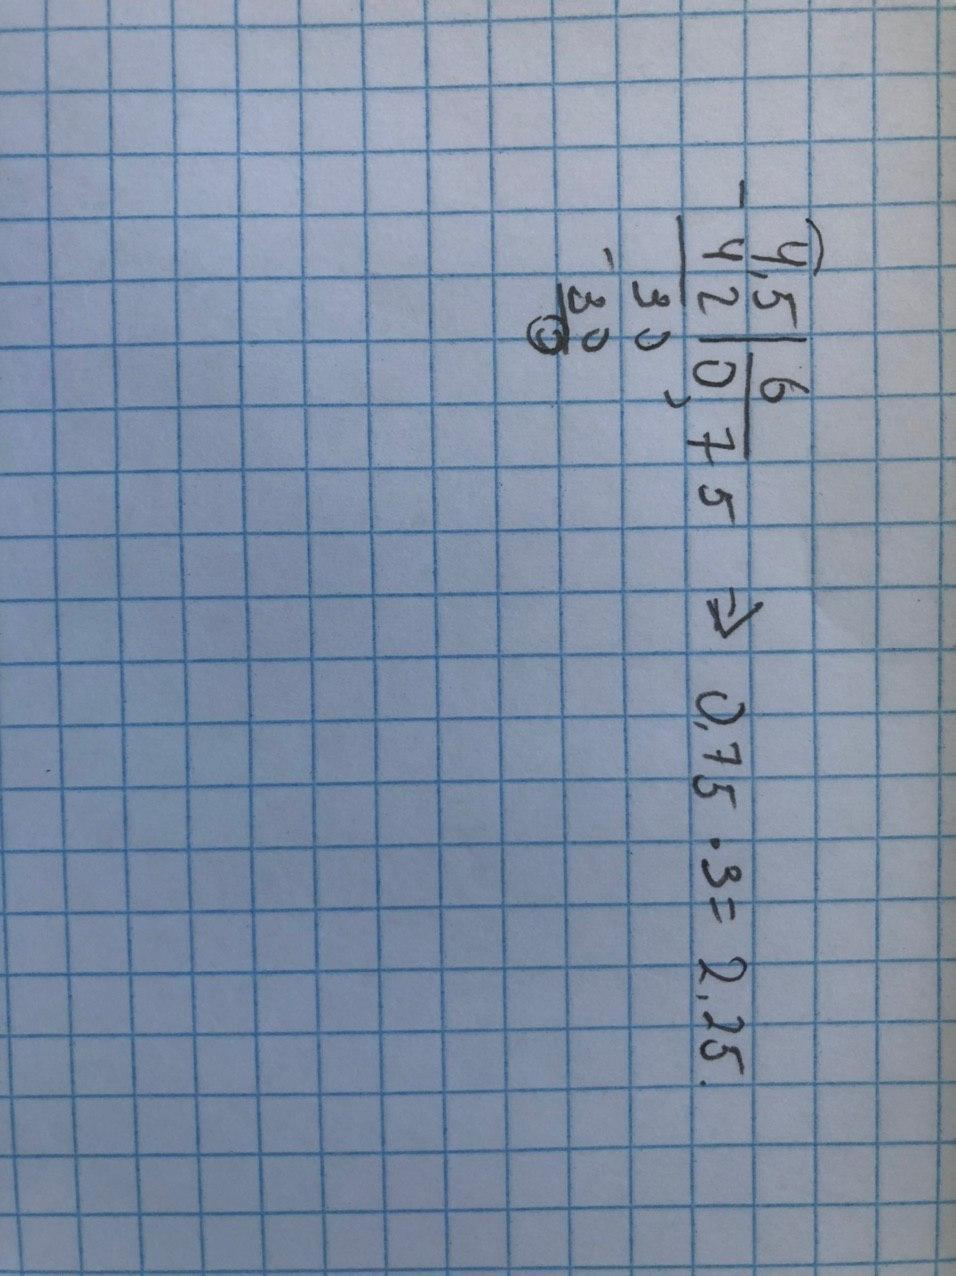 4,5 | 6
- 42 | 0,75 ⇒ 0,75 · 3 = 2,25.
30
- 30
0